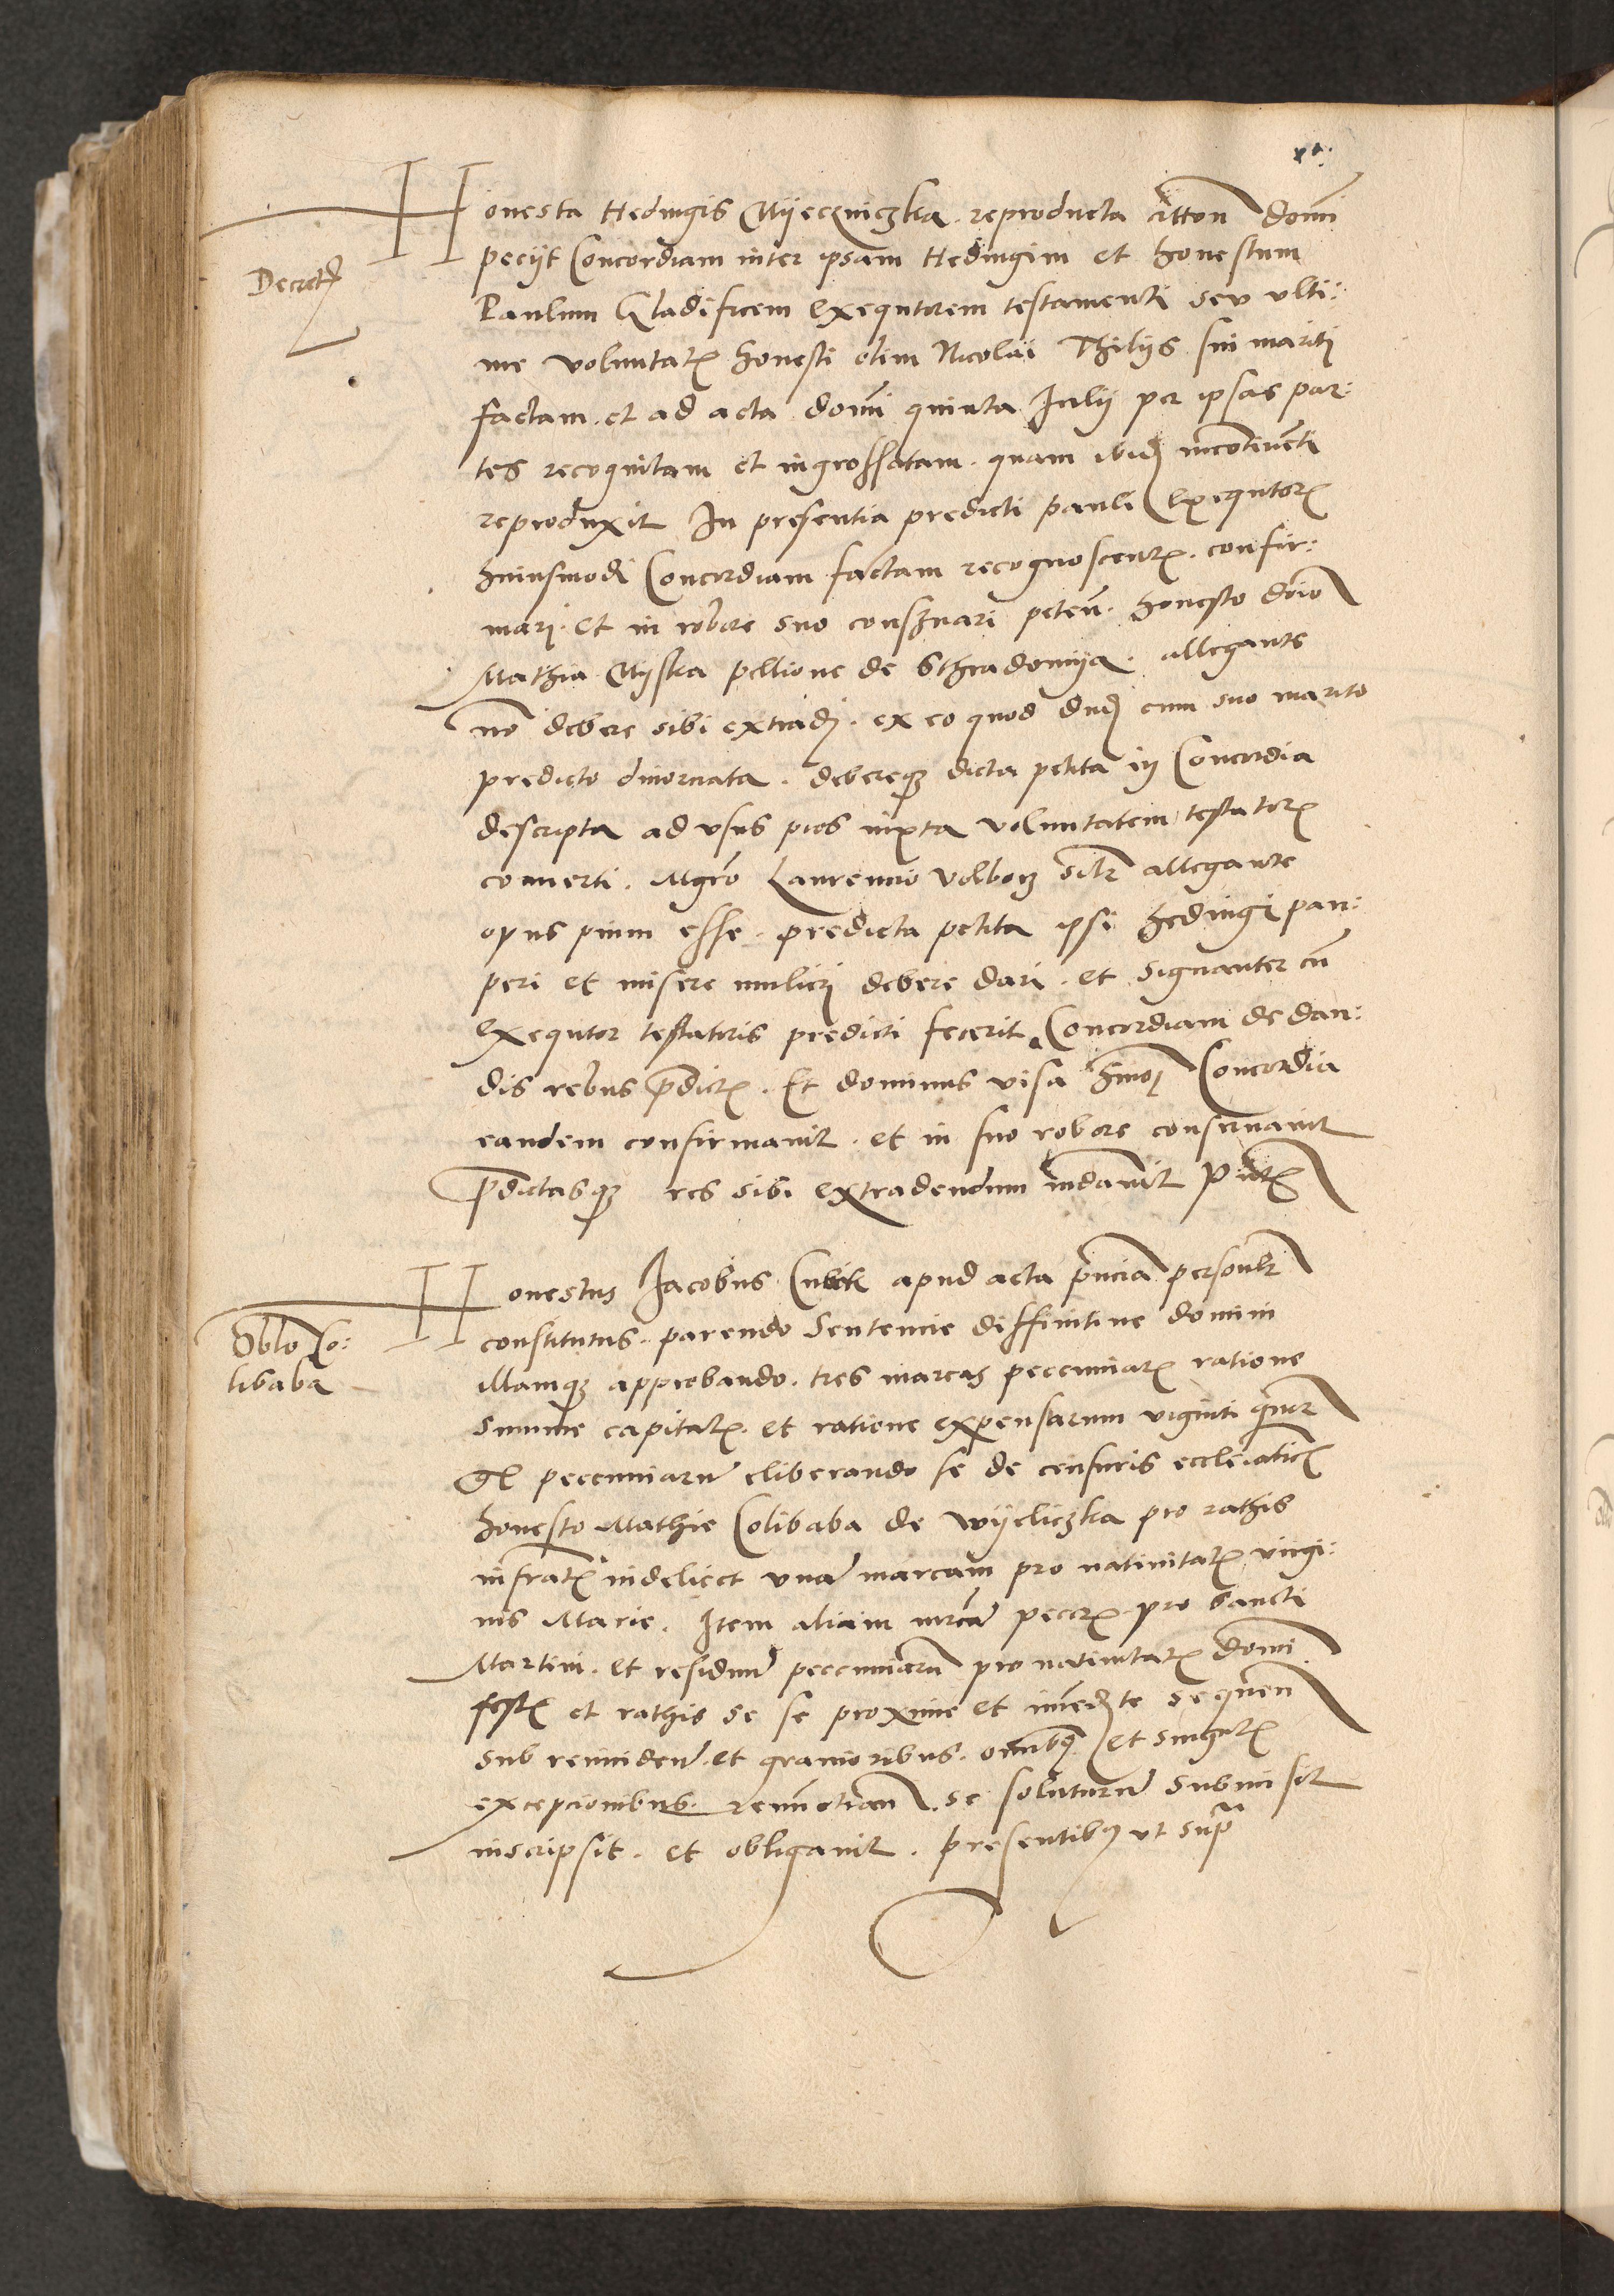 Honesta Hedvigis Myeczniczka. reproducta citton domi
Decretu
peciit Concordiam inter ipsam Hedvigim et honestum
Paulum Gladificem exequtorem testamenti seu ulti:
me voluntatis honesti olim Nicolai Thilijs sui mariti
factam. et ad acta domi quinta Julij per ipsas par:
tes recognitam et ingrossatam. quam ibidem incontinenti
reproduxit In presentia predicti pauli Exequtoris
huiusmodi Concordiam factam recognoscentis. confir:
mari. et in robore suo conservari peten. honesto domio
Mathia Myska pellione de Sthradomija. allegante
non debere sibi extradi. ex eo quod dudum cum suo marito
predicto divorciata. debereque dicta petita in Concordia
descripta ad usus pios iuxta voluntatem testatoris
converti. Mgro Laurencio Volbom similiter allegante
opus pium esse. predicta petita ipsi Hedvigi pau:
peri et misere mulieri debere dari. et signanter cum
exequtor testatoris predicti fecerit Concordiam de dan:
dis rebus predictis. Et dominus visa huiusmodi Concordia
eandem confirmavit. et in suo robore conservavit
predictasque res sibi extradendum mandavit Pntibus
Honestus Jacobus Cubek apud acta presencia personaliter
Oblo Co:
libaba
constitutus. parendo Sentencie diffinitive domini
illamque approbando. tres marcas peccuniarum ratione
summe capitalis. et ratione expensarum viginti quatuor
gr peccuniarum eliberando se de censuris ecclesiasticis
honesto Mathie Colibaba de Wyeliczka pro rathis
infrascriptis videlicet unam marcam pro nativitatis virgi:
nis Marie. Item aliam marcam peccuniarum pro Sancti
Martini. et residuum peccuniarum pro nativitatis domi
festis et rathis se se proxime et immediate sequen
sub reincidencia. et gravioribus. omnibusque et singulis
excepcionibus. renunctian. se soluturum submisit
inscripsit. et obligavit. presentibus ut supra